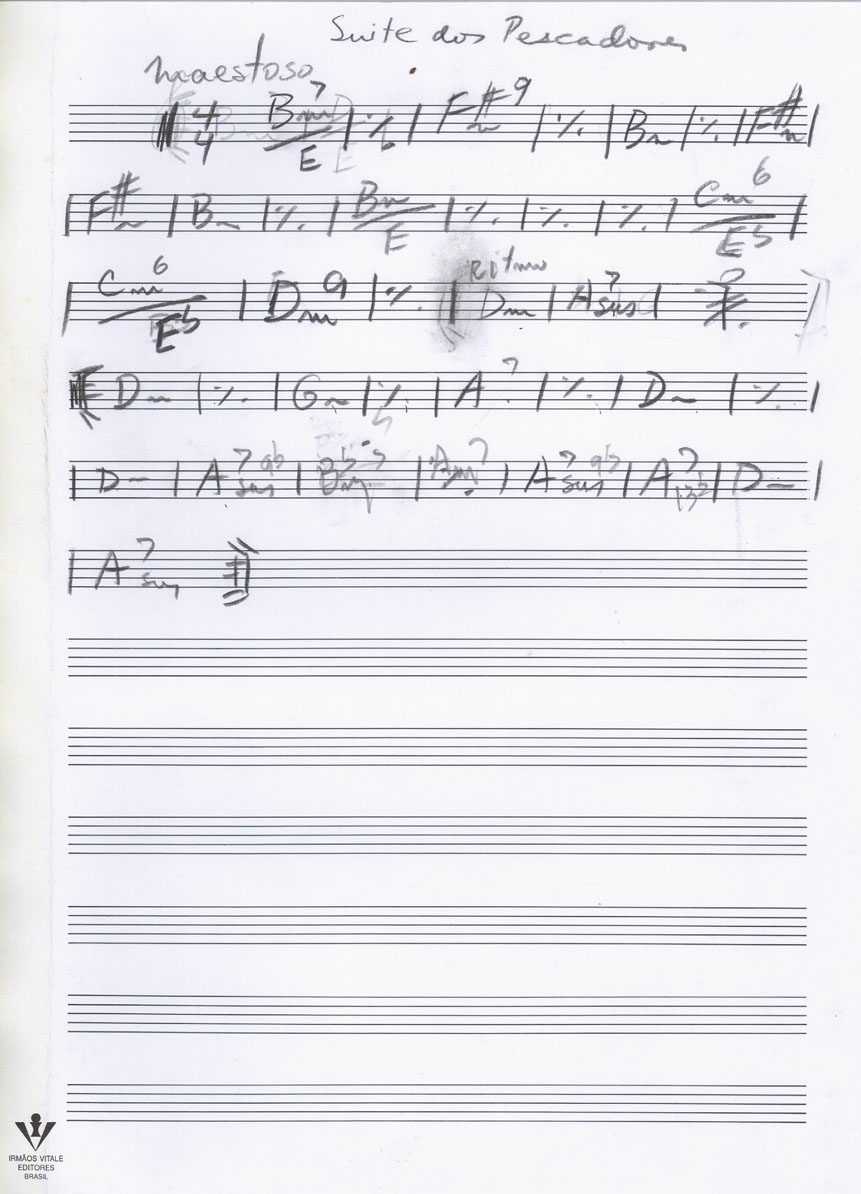 Suite dos Pescadores
maestoso
4/4 Bm7/E | ٪ | F#m9 | ٪ | Bm | ٪ | F#m |
| F#m | Bm | ٪ | Bm/E | ٪ | ٪ | ٪ | Cm6/Eb |
Ritmo
| Cm6/Eb | Dm9 | ٪ | Dm | A7sus |
Dm | ٪ | Gm | ٪ | A7 | ٪ | Dm | ٪ |
| Dm | A7sus | | Am7 | A7sus | A7 | Dm |
| A7sus
IRMÃOS VITALE
EDITORES
BRASIL